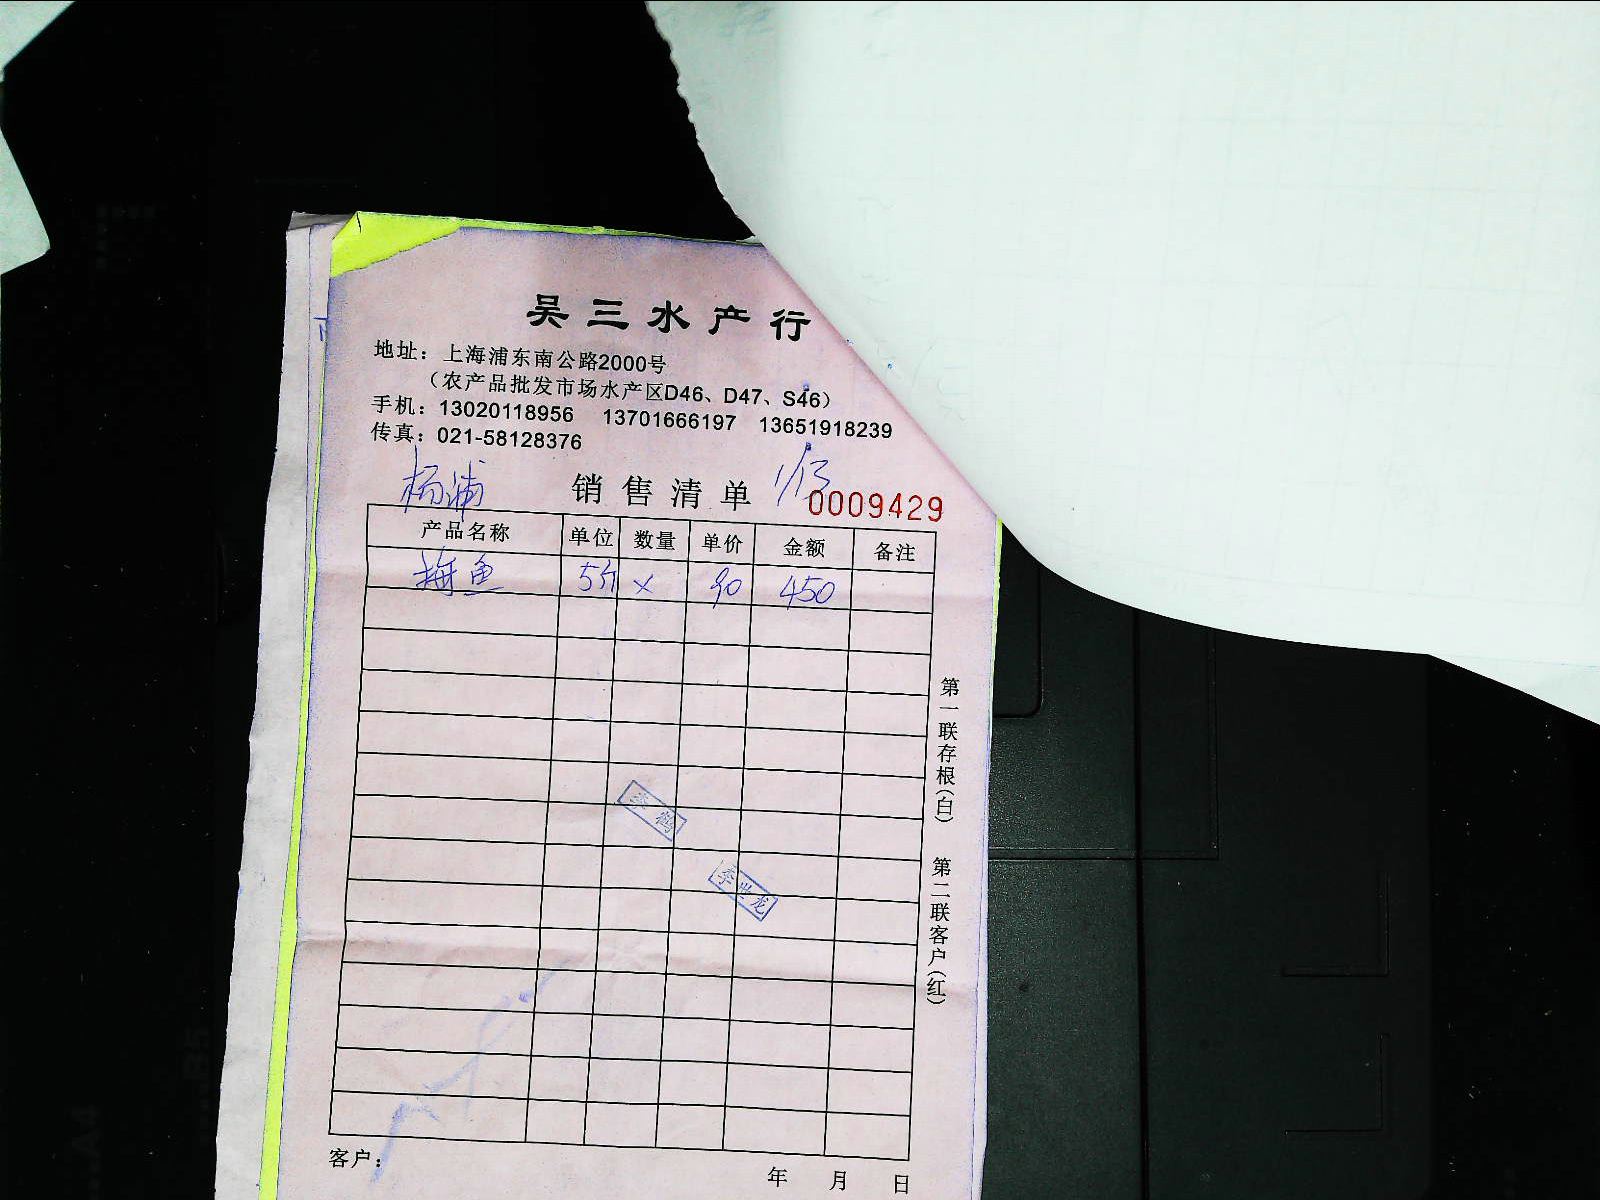 吴三水产行
地址：上海浦东南公路2000号
（农产品批发市场水产区D46、D47、S46）
手机：13020118956 13701666197 13651918239
传真：021-58128376
杨浦 销售清单 1/13 0009429
产品名称 单位 数量 单价 金额 备注
梅鱼 5斤 × 90 450
第一联存根（白） 第二联客户（红）
李鹤
李世龙
客户： 年 月 日